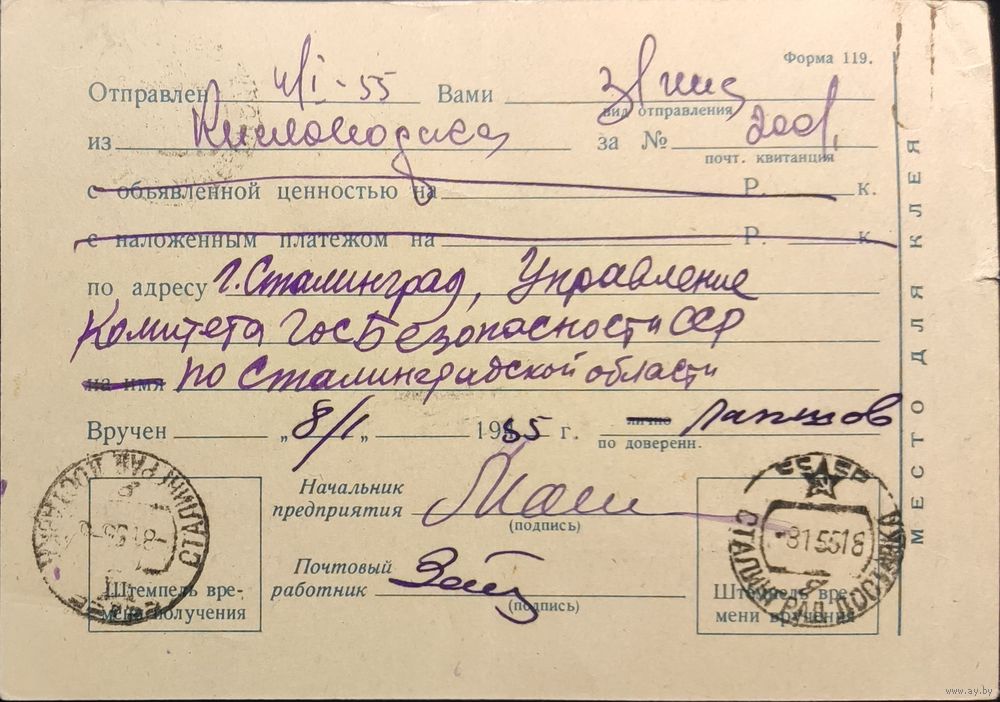 Форма 119.
Отправлен 4/I-55 Вами
вид отправления
из Кисловодска за № 200
почт. квитанция
с объявленной ценностью на Р. к.
с наложенным платежом на Р. к.
по адресу г. Сталинград, Управление
Комитета ГосБезопасности ССР
на имя по Сталинградской области
Вручен „8/I„ 1955 г. лично
по доверенн.
Начальник
предприятия
(подпись)
Почтовый
работник
(подпись)
Штемпель вре-
мени получения
Штемпель вре-
мени вручения
СТАЛИНГРАД ДОСТАВКА
-815518
МЕСТО ДЛЯ КЛЕЯ
www.ay.by